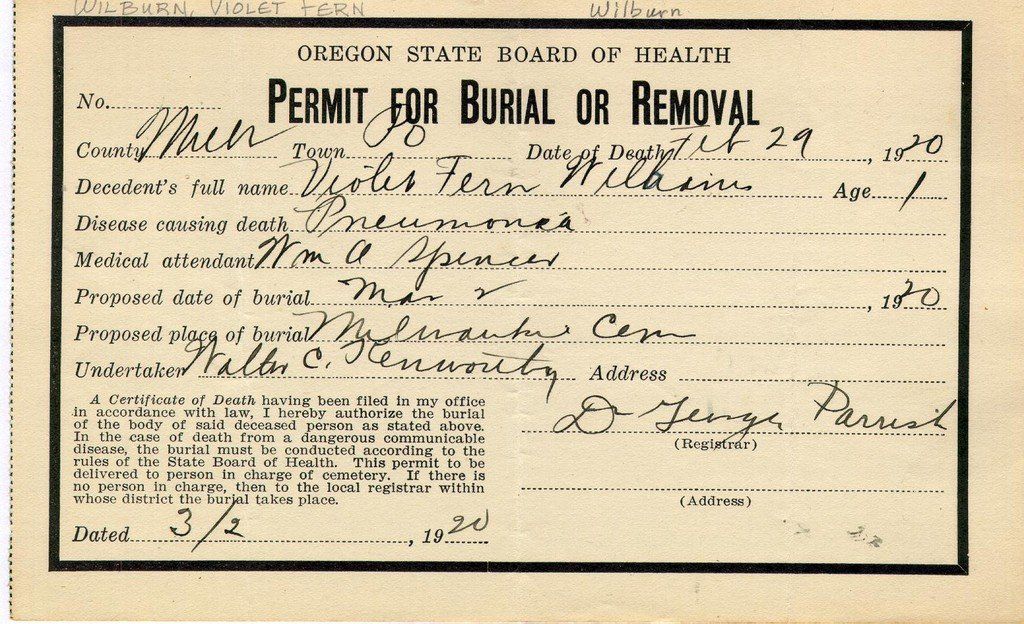 WILBURN, VIOLET FERN Wilburn
OREGON STATE BOARD OF HEALTH
No.
PERMIT FOR BURIAL OR REMOVAL
County Town Po Date of Death Feb 29, 1920
Decedent's full name Violet Fern Age 1
Disease causing death Pneumonia
Medical attendant Wm A Spencer
Proposed date of burial Mar 2, 1920
Proposed place of burial Milwaukie Cem
Undertaker Walter C. Kenworthy Address
A Certificate of Death having been filed in my office
in accordance with law, I hereby authorize the burial
of the body of said deceased person as stated above.
In the case of death from a dangerous communicable
disease, the burial must be conducted according to the
rules of the State Board of Health. This permit to be
delivered to person in charge of cemetery. If there is
no person in charge, then to the local registrar within
whose district the burial takes place.
Dated 3/2, 1920
Dr George Parrish
(Registrar)
(Address)